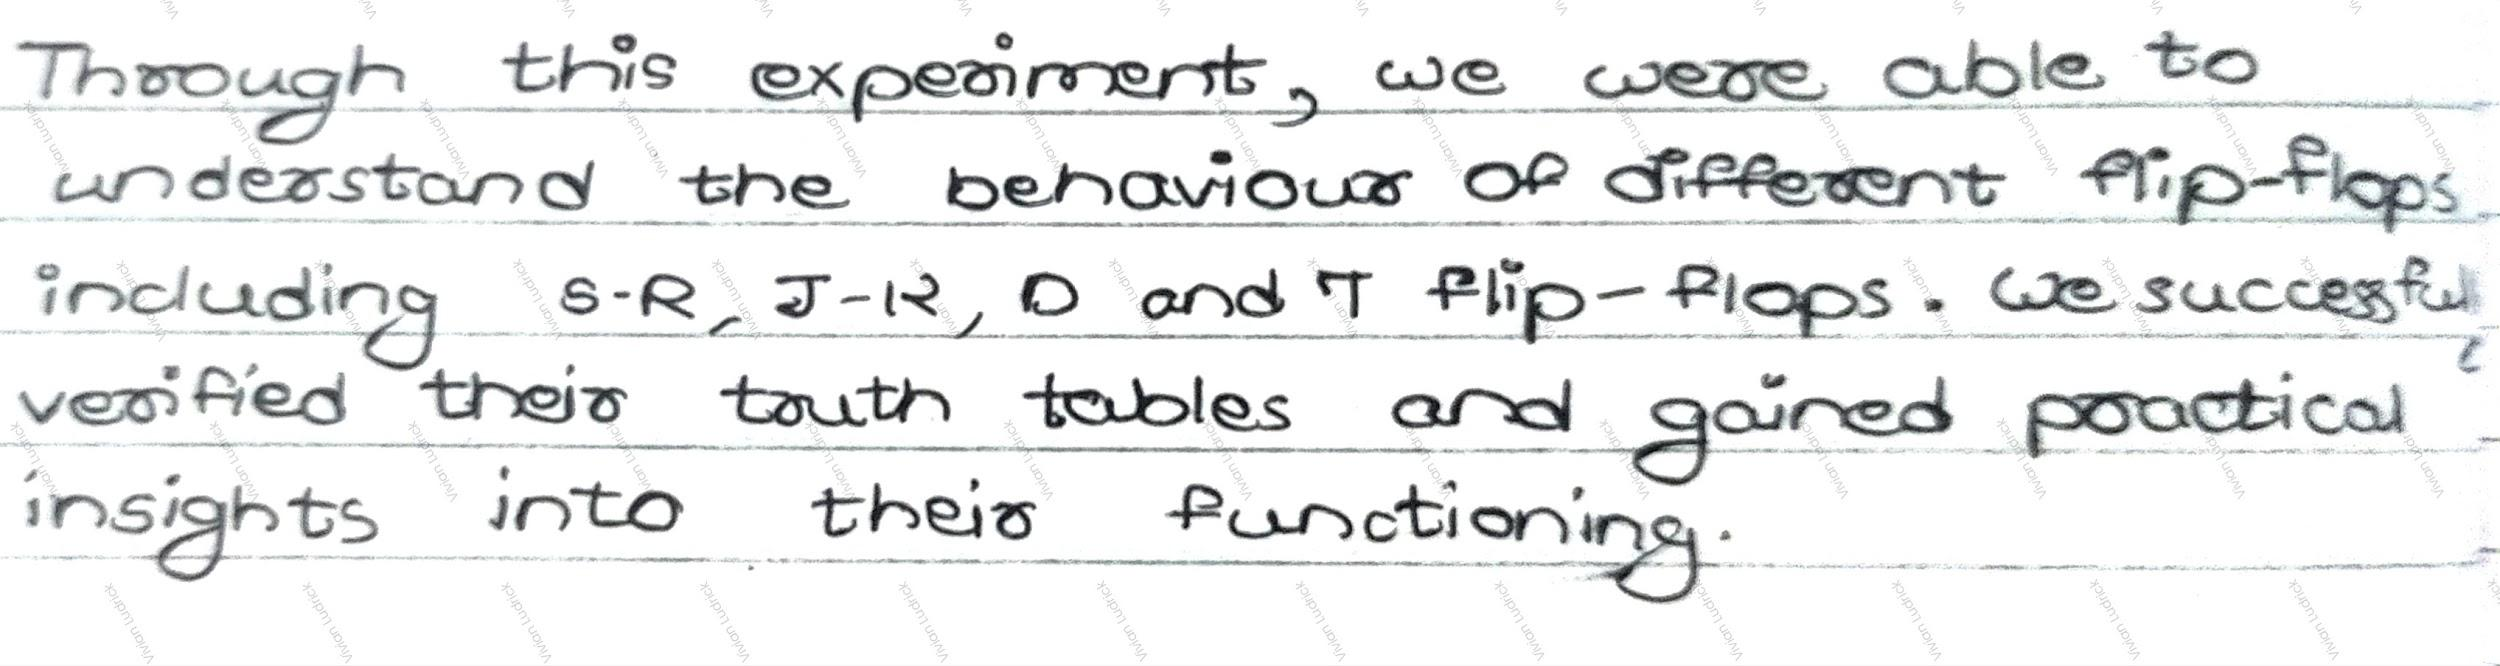 Through this experiment, we were able to
understand the behaviour of different flip-flops
including S-R, J-K, D and T flip-flops. We successful
verified their truth tables and gained practical
insights into their functioning.